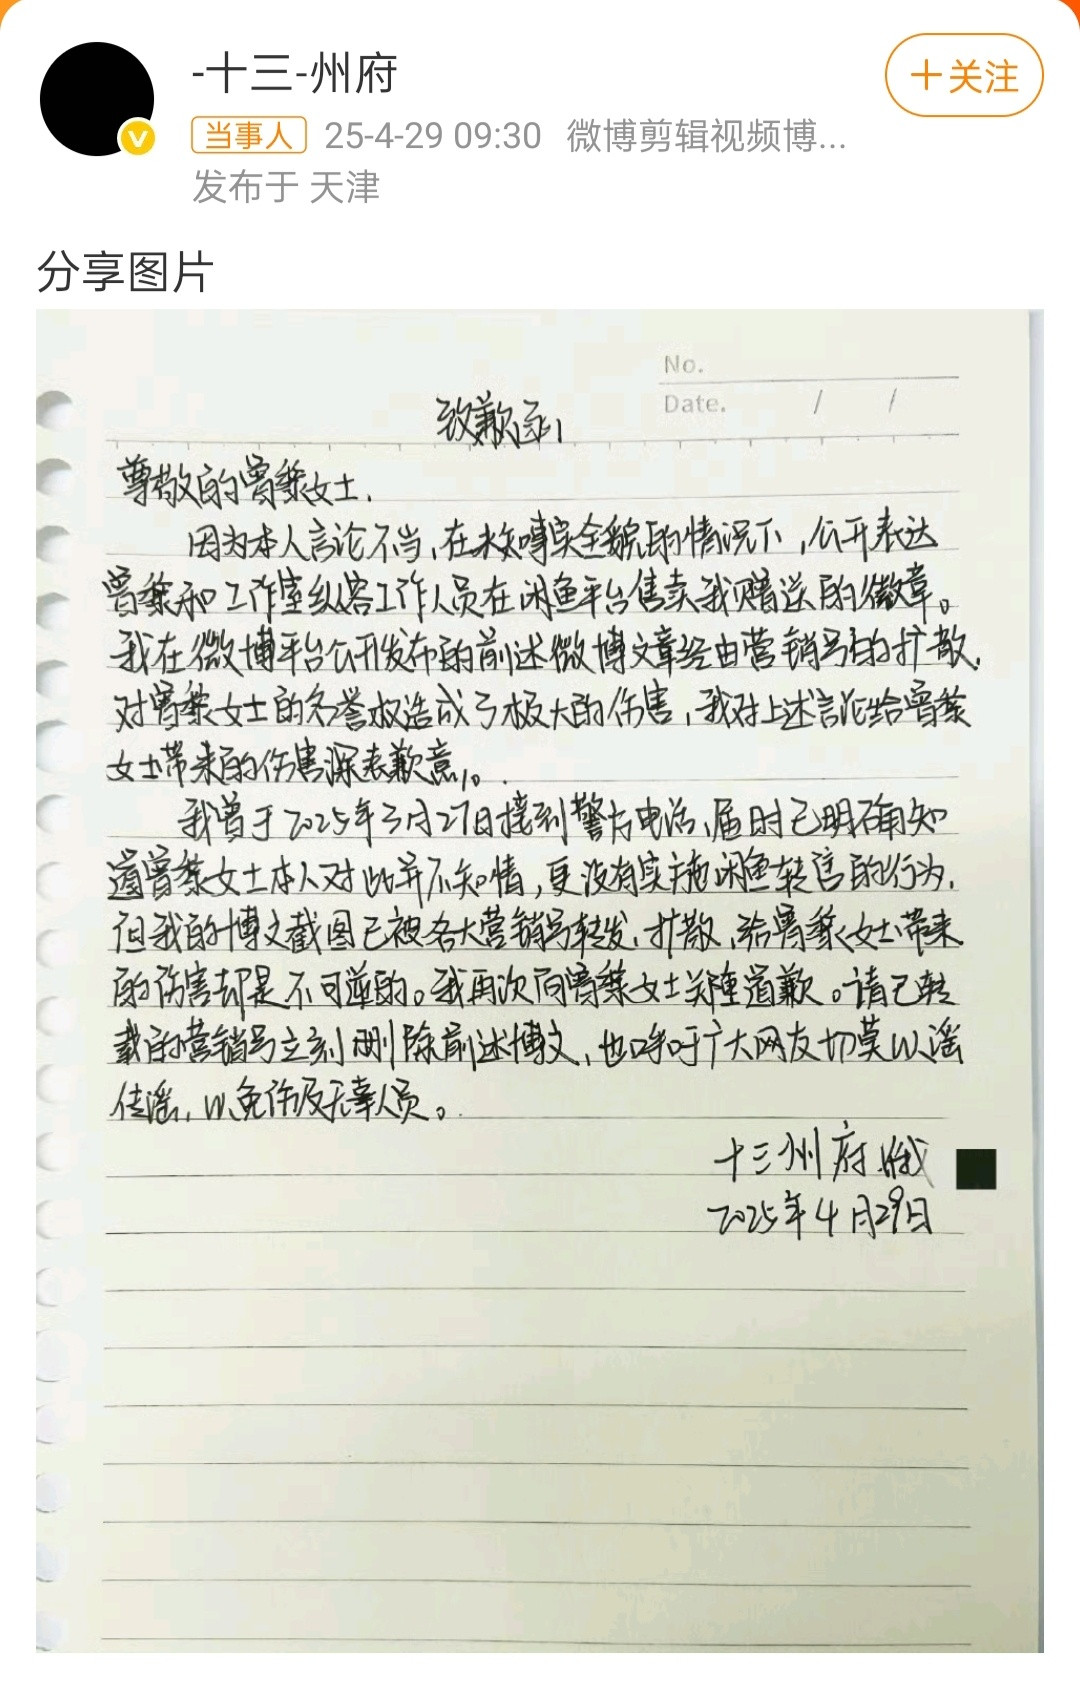 -十三-州府
+关注
当事人 25-4-29 09:30 微博剪辑视频博...
发布于 天津
分享图片
No.
Date. / /
致歉函
尊敬的曾黎女士,
因为本人言论不当,在未知事实全貌的情况下,公开表达
曾黎和工作室纵容工作人员在闲鱼平台售卖我赠送的徽章。
我在微博平台公开发布的前述微博文章经由营销号的扩散,
对曾黎女士的名誉权造成了极大的伤害,我对上述言论给曾黎
女士带来的伤害深表歉意。
我曾于2025年3月27日接到警方电话,届时已明确知
道曾黎女士本人对此并不知情,更没有实施闲鱼转售的行为,
但我的博文截图已被各大营销号转发,扩散,给曾黎女士带来
的伤害却是不可逆的。我再次向曾黎女士郑重道歉。请已转
载的营销号立刻删除前述博文,也呼吁广大网友切莫以谣
传谣,以免伤及无辜人员。
十三州府
2025年4月29日